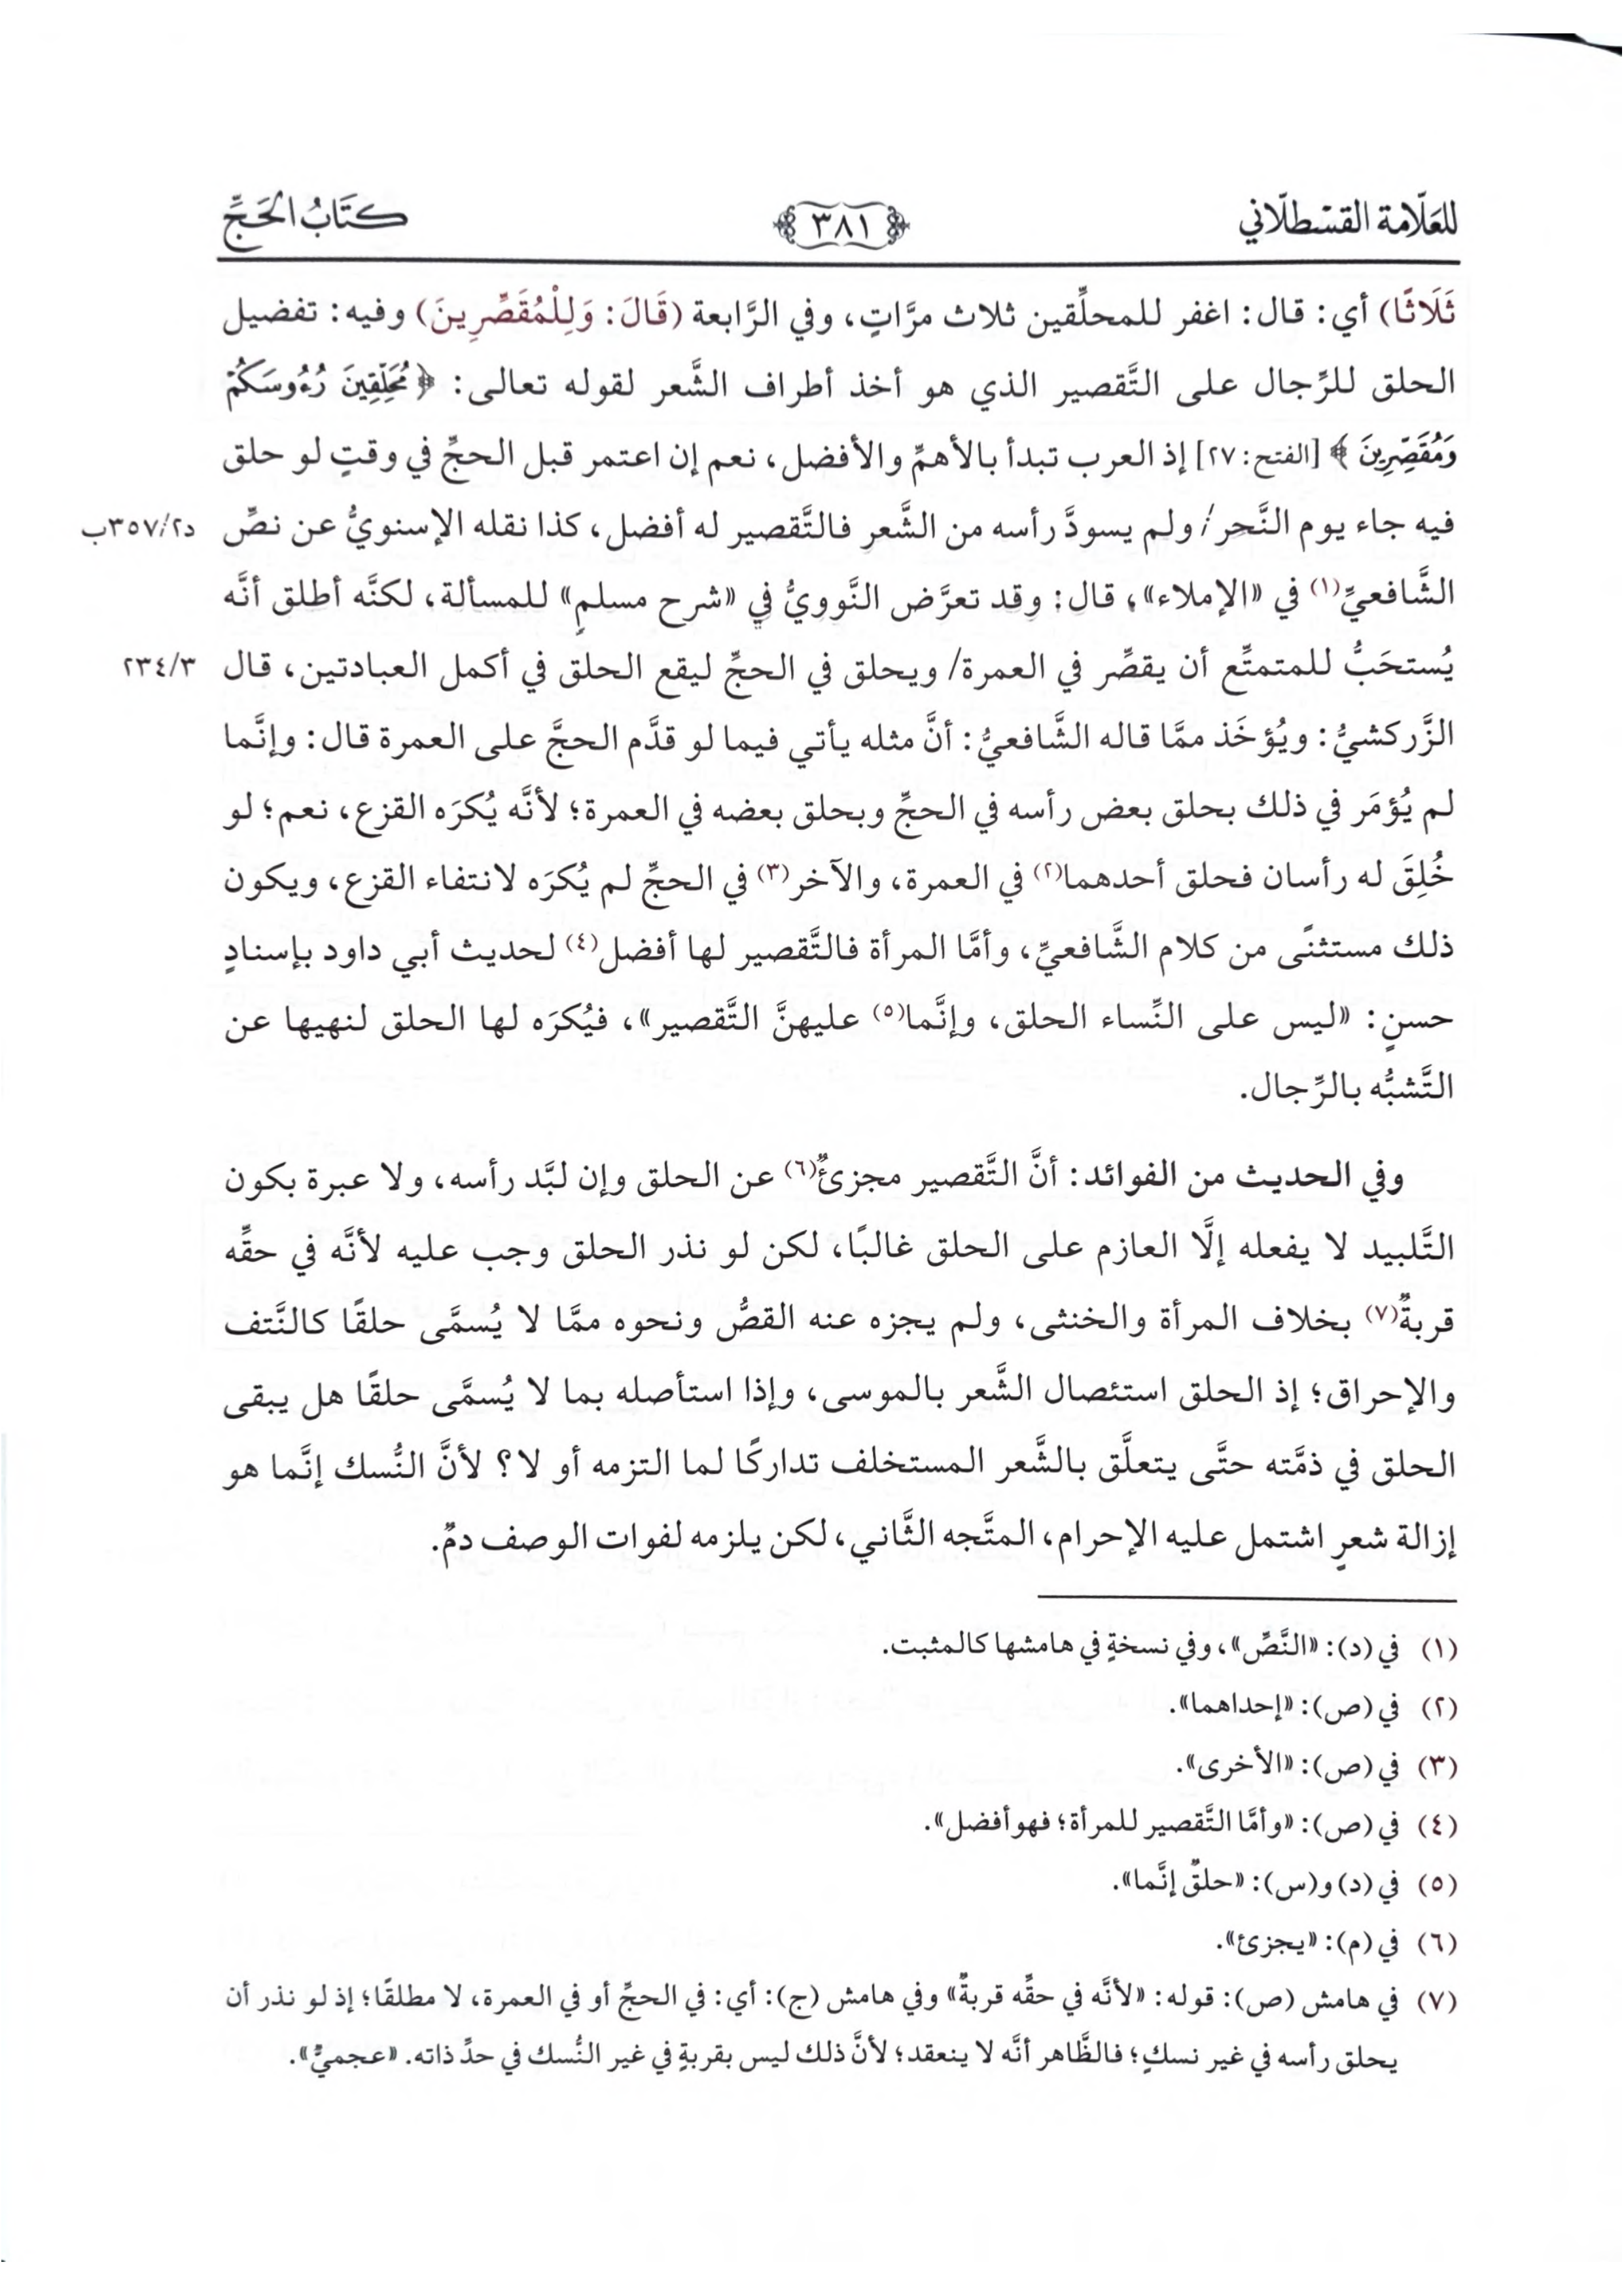 للعلّامة القسطلّاني ٣٨١ كتَابُ الحَجِّ
ثَلَاثًا) أي: قال: اغفر للمحلِّقين ثلاث مرَّاتٍ، وفي الرَّابعة (قَالَ: وَلِلْمُقَصِّرِينَ) وفيه: تفضيل
الحلق للرِّجال على التَّقصير الذي هو أخذ أطراف الشَّعر لقوله تعالى: ﴿مُحَلِّقِينَ رُءُوسَكُمْ
وَمُقَصِّرِينَ﴾ [الفتح: ٢٧] إذ العرب تبدأ بالأهمِّ والأفضل، نعم إن اعتمر قبل الحجِّ في وقتٍ لو حلق
فيه جاء يوم النَّحر/، ولم يسودَّ رأسه من الشَّعر فالتَّقصير له أفضل، كذا نقله الإسنويُّ عن نصِّ د٣٥٧/٢ب
الشَّافعيِّ(١) في «الإملاء»، قال: وقد تعرَّض النَّوويُّ في «شرح مسلمٍ» للمسألة، لكنَّه أطلق أنَّه
يُستحَبُّ للمتمتِّع أن يقصِّر في العمرة/ ويحلق في الحجِّ ليقع الحلق في أكمل العبادتين، قال ٢٣٤/٣
الزَّركشيُّ: ويُؤخَذ ممَّا قاله الشَّافعيُّ: أنَّ مثله يأتي فيما لو قدَّم الحجَّ على العمرة قال: وإنَّما
لم يُؤمَر في ذلك بحلق بعض رأسه في الحجِّ وبحلق بعضه في العمرة؛ لأنَّه يُكرَه القزع، نعم؛ لو
خُلِقَ له رأسان فحلق أحدهما(٢) في العمرة، والآخر(٣) في الحجِّ لم يُكرَه لانتفاء القزع، ويكون
ذلك مستثنًى من كلام الشَّافعيِّ، وأمَّا المرأة فالتَّقصير لها أفضل(٤) لحديث أبي داود بإسنادٍ
حسنٍ: «ليس على النِّساء الحلق، وإنَّما(٥) عليهنَّ التَّقصير»، فيُكرَه لها الحلق لنهيها عن
التَّشبُّه بالرِّجال.
وفي الحديث من الفوائد: أنَّ التَّقصير مجزئٌ(٦) عن الحلق وإن لبَّد رأسه، ولا عبرة بكون
التَّلبيد لا يفعله إلَّا العازم على الحلق غالبًا، لكن لو نذر الحلق وجب عليه لأنَّه في حقِّه
قربةٌ(٧) بخلاف المرأة والخنثى، ولم يجزه عنه القصُّ ونحوه ممَّا لا يُسمَّى حلقًا كالنَّتف
والإحراق؛ إذ الحلق استئصال الشَّعر بالموسى، وإذا استأصله بما لا يُسمَّى حلقًا هل يبقى
الحلق في ذمَّته حتَّى يتعلَّق بالشَّعر المستخلف تداركًا لما التزمه أو لا؟ لأنَّ النُّسك إنَّما هو
إزالة شعرٍ اشتمل عليه الإحرام، المتَّجه الثَّاني، لكن يلزمه لفوات الوصف دمٌ.
(١) في (د): «النَّصِّ»، وفي نسخةٍ في هامشها كالمثبت.
(٢) في (ص): «إحداهما».
(٣) في (ص): «الأخرى».
(٤) في (ص): «وأمَّا التَّقصير للمرأة؛ فهو أفضل».
(٥) في (د) و(س): «حلقٌ إنَّما».
(٦) في (م): «يجزئ».
(٧) في هامش (ص): قوله: «لأنَّه في حقِّه قربةٌ» وفي هامش (ج): أي: في الحجِّ أو في العمرة، لا مطلقًا؛ إذ لو نذر أن
يحلق رأسه في غير نسكٍ؛ فالظَّاهر أنَّه لا ينعقد؛ لأنَّ ذلك ليس بقربةٍ في غير النُّسك في حدِّ ذاته. «عجميٌّ».